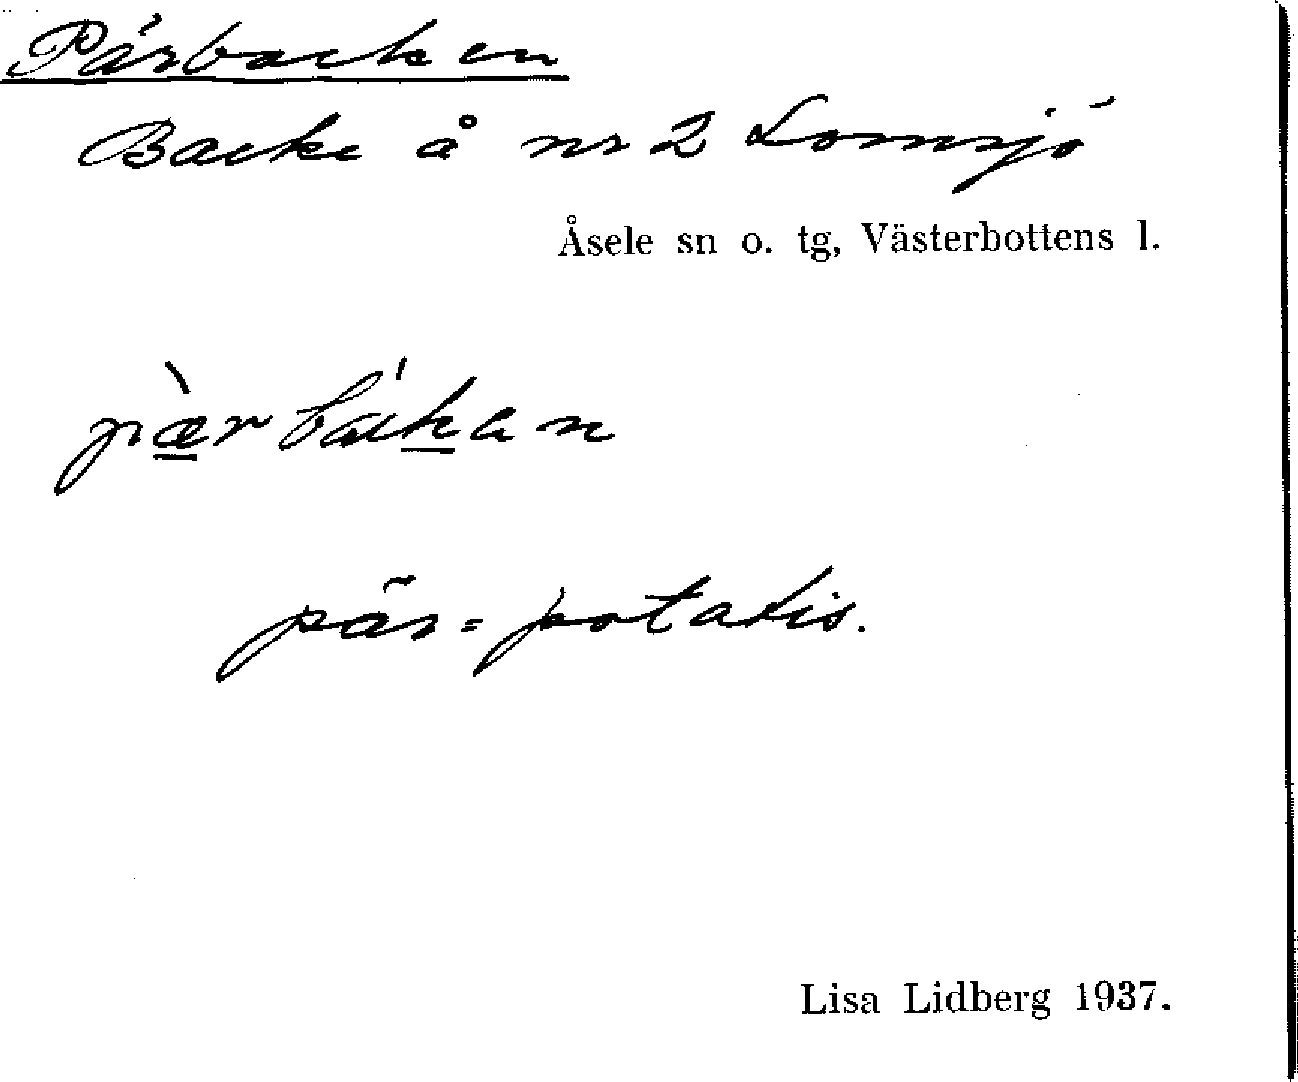 Pärbacken
Backe å nr 2 Lomsjö
Åsele sn o. tg, Västerbottens l.
pær bakan
pär = potatis.
Lisa Lidberg 1937.